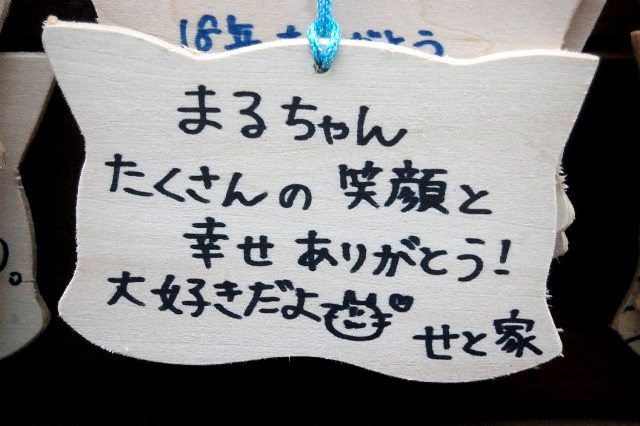 18年ありがとう
まるちゃん
たくさんの笑顔と
幸せありがとう!
大好きだよ
せと家